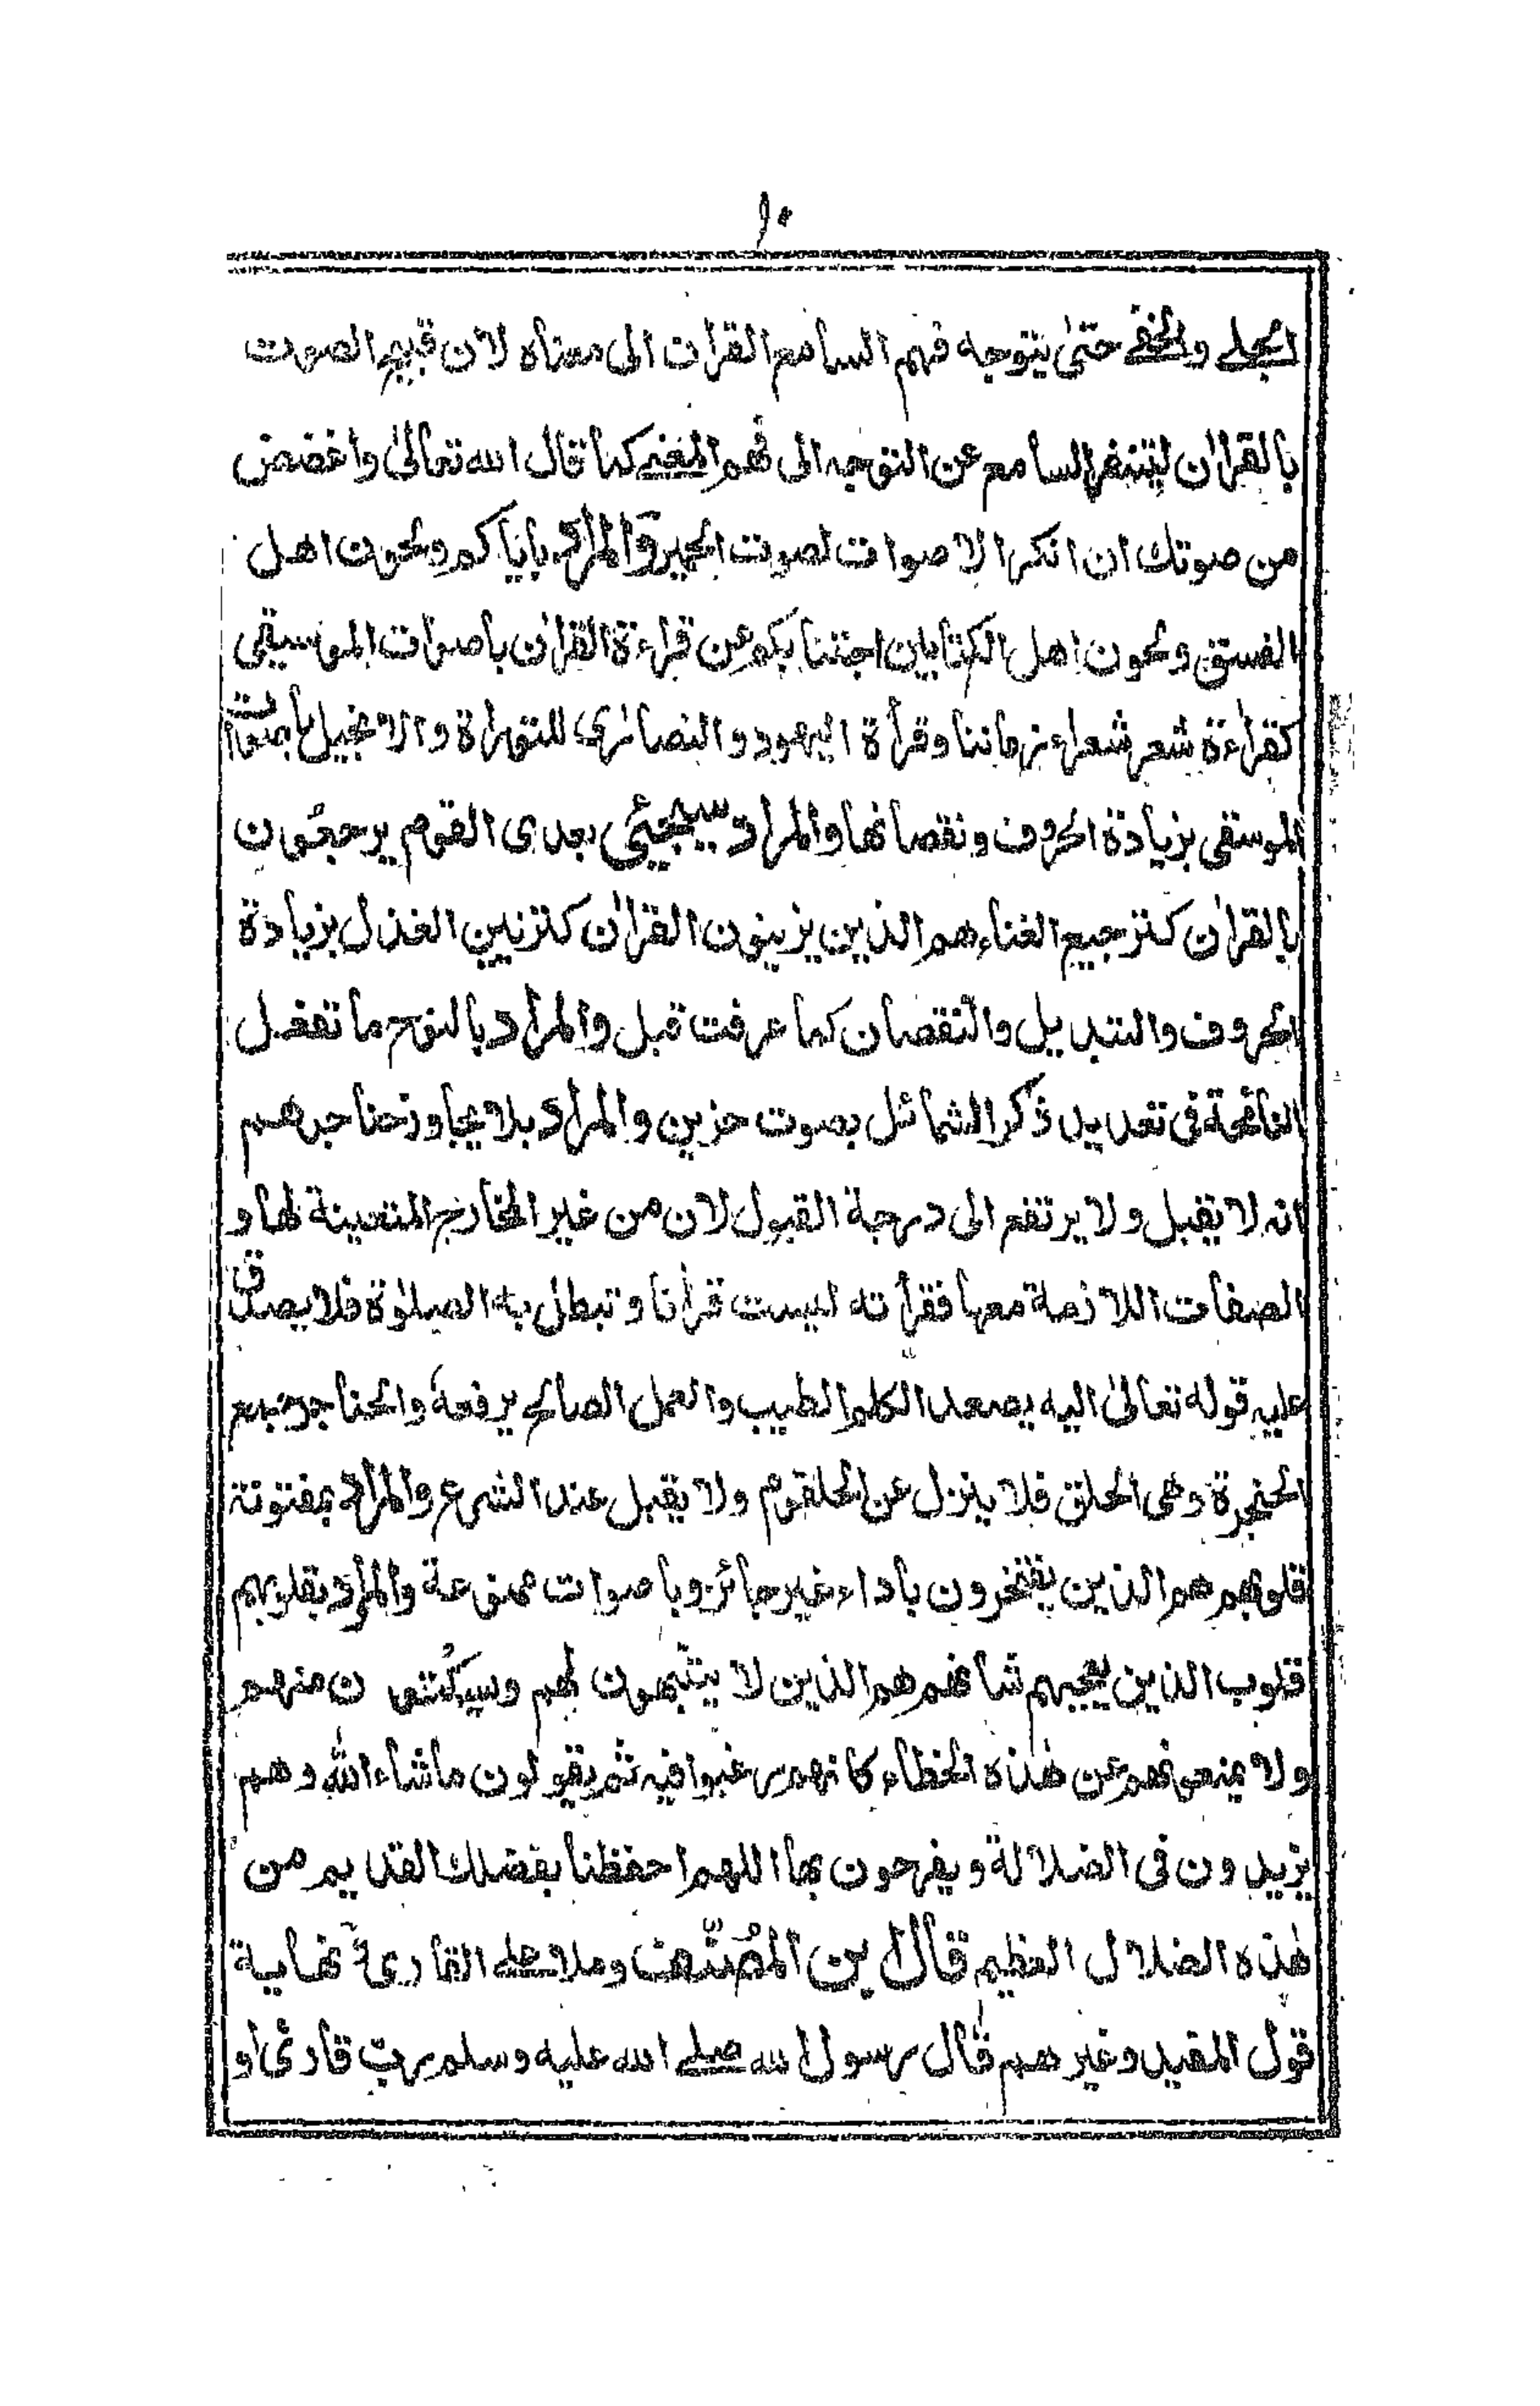 ١٠
الجلي والخفي حتى يتوجه فهم السامع القرآن الى معناه لان قبيح الصوت
بالقراٰن ليتنفر السامع عن التوجه الى فهم المغنے كما قال الله تعالىٰ واغضض
من صوتك ان انكر الاصوات لصوت الحمير والمراد باياكم ولحون اهل
الفسق ولحون اهل الكتابين اجتنابكم عن قراءة القراٰن باصوات الموسيقى
كقراءة شعر شعراء زماننا وقرأة اليهود والنصارى للتوراة والانجيل باصوات
الموسقى بزيادة الحروف ونقصانها والمراد سيجيئى بعدى القوم يرجعون
بالقراٰن كترجيع الغناء هم الذين يزينون القراٰن كتزيين الغزل بزيادة
الحروف والتبديل والنقصان كما عرفت قبل والمراد بالنوح ما تفعل
النائحة فى تعديد ذكر الشمائل بصوت حزين والمراد بلا يجاوز حناجرهم
انه لا يقبل ولا يرتفع الى درجة القبول لان من غير المخارج المتعينة لها و
الصفات اللازمة معها فقرأته ليست قرأنا وتبطل به الصلوٰة فلا يصدق
عليه قوله تعالىٰ اليه يصعد الكلم الطيب والعمل الصالح يرفعه والحناجر جمع
الحنجرة وهى الحلق فلا ينزل عن الحلقوم ولا يقبل عند الشرع والمراد بمفتونة
قلوبهم هم الذين يفتخرون باداء غير جائز وباصوات ممنوعة والمراد بقلوبهم
قلوب الذين يعجبهم شانهم هم الذين لا ينبهون لهم وسيكتون منهم
ولا يمنعونهم عن هٰذه الخطاء كانهم رغبوا فيه ثم يقولون ماشاء الله وهم
يزيدون فى الضلالة ويفرحون بها اللهم احفظنا بفضلك القديم من
هٰذه الضلال العظيم قال ابن المصنف وملا علے القارى نهاية
قول المفيد وغيرهم قال رسول الله صلے الله عليه وسلم رب قارئ او